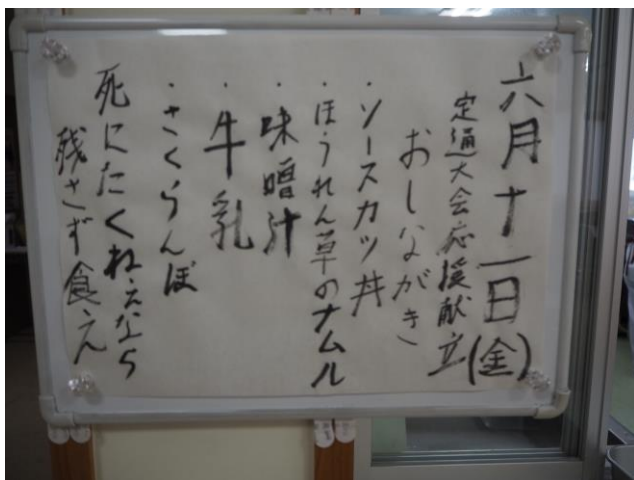 六月十一日(金)
定通大会応援献立
おしながき
・ソースカツ丼
・ほうれん草のナムル
・味噌汁
・牛乳
・さくらんぼ
死にたくねえなら
残さず食え